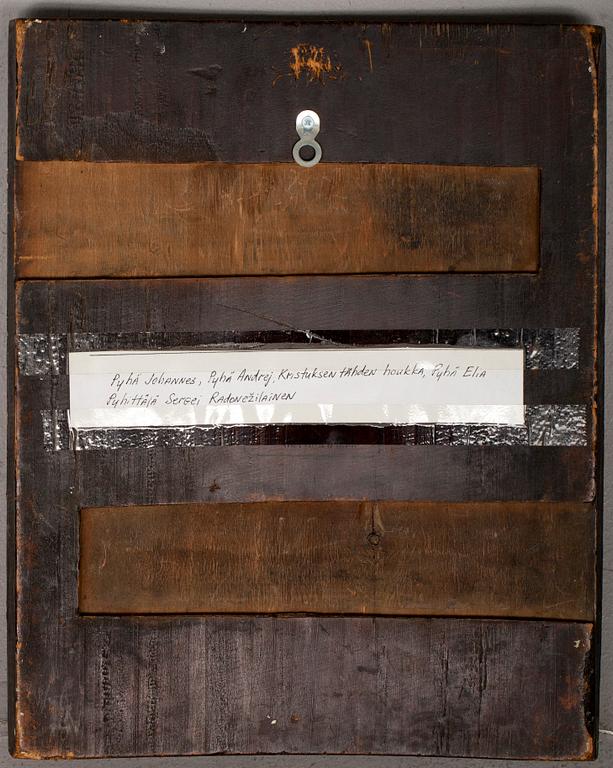 Pyhä Johannes, Pyhä Andrej, Kristuksen tähden houkka, Pyhä Elia
Pyhittäjä Sergei Radonežilainen